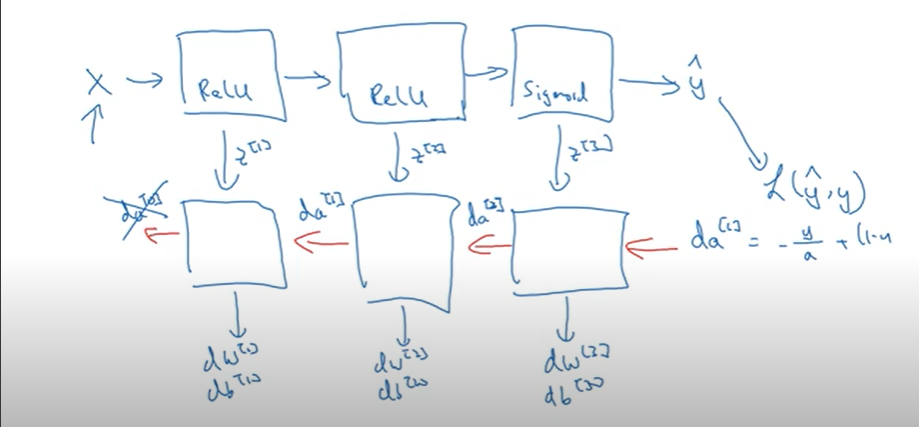 X → ReLU → ReLU → Sigmoid → ŷ
z^[1] z^[2] z^[3]
L(ŷ, y)
da^[0] da^[1] da^[2] da^[l] = - y/a + (1-y
dw^[1] dw^[2] dw^[3]
db^[1] db^[2] db^[3]